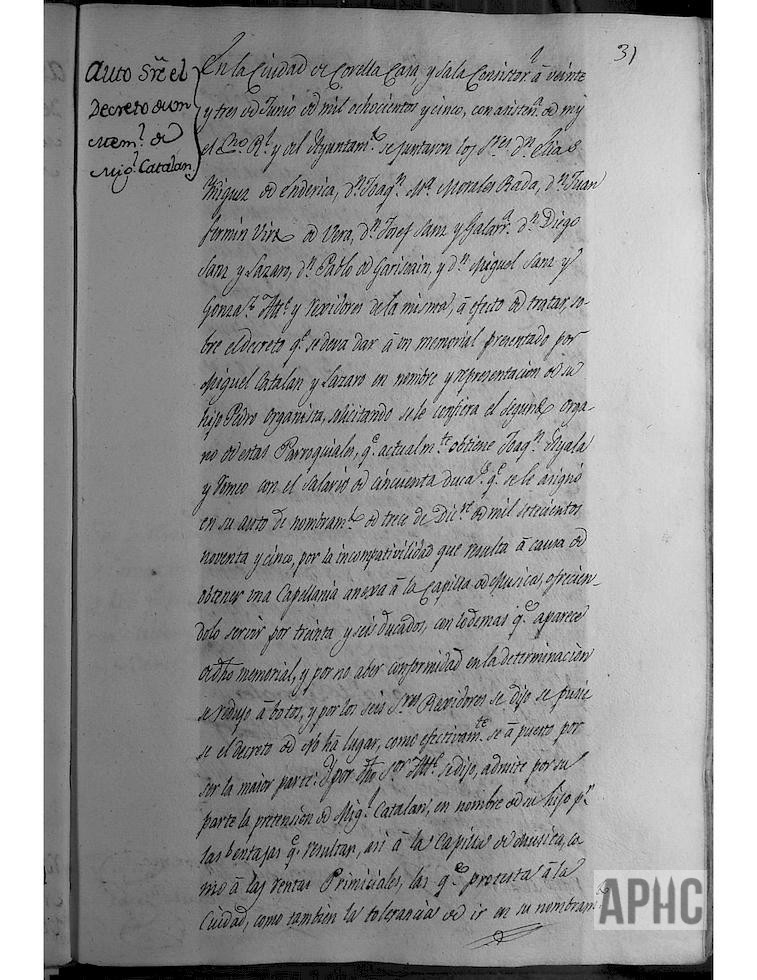 31
Auto Sre el
Decreto de un
Mem.l de
Mig.l Catalan
En la Ciudad de Corella Casa y Sala Consistor.l á veinte
y tres de Junio de mil ochocientos y cinco, con asisten.a de mi
el Sno R.l y del Ayuntam.to se juntaron los S.res d.n Elias
Miguez de Enderica, d.n Joaq.n M.a Morales Rada, d.n Juan
fermin Virto de Vera, d.n Josef Sanz y Galarr.a d.n Diego
Sanz y Lazaro, d.n Pablo de Garisoain, y d.n Miguel Sanz y
Gonza.z Al.e y Rexidores de la misma, á efecto de tratar, so-
bre el decreto q.e se deva dar á un memorial presentado por
Miguel Catalan y Lazaro en nombre y representacion de su
hijo Pedro Organista, solicitando se le confiera el segundo Orga-
no de estas Parroquiales, q.e actualm.te obtiene Joaq.n Ayala
y Romeo con el Salario de cincuenta duca.s q.e se le asignó
en su auto de nombram.to de trece de Dic.re de mil setecientos
noventa y cinco, por la incompativilidad que resulta á causa de
obtener una Capillania anexa á la Capilla de Musica, ofrecien-
dolo servir por treinta y seis Ducados, con lo demas q.e aparece
de dho memorial, y por no aber conformidad en la determinacion
se redujo á botos, y por los seis S.res Rexidores se dijo se pusie
se el decreto de No há lugar, como efectivam.te se á puesto por
ser la maior parte: Y por dho S.or Al.e se dijo, admite por su
parte la pretension de Mig.l Catalan, en nombre de su hijo p.r
las bentajas q.e resultan, asi á la Capilla de Musica, co
mo á las rentas Primiciales, las q.e protesta á la
Ciudad, como tambien la tolerancia de ir en su nombram.to
APHC